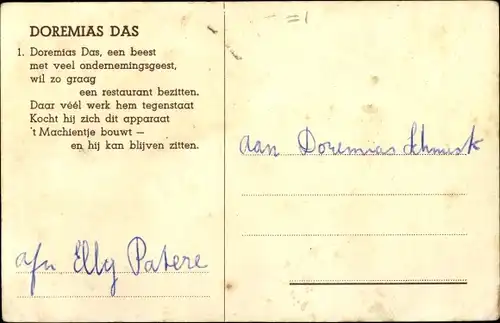 DOREMIAS DAS
1. Doremias Das, een beest
met veel ondernemingsgeest,
wil zo graag
een restaurant bezitten.
Daar véél werk hem tegenstaat
Kocht hij zich dit apparaat
't Machientje bouwt —
en hij kan blijven zitten.
afn Elly Patere
aan Doremias Schmusk